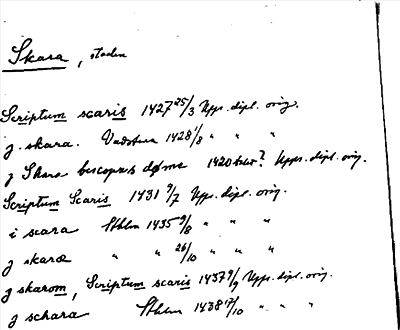 Skara, staden
Scriptum scaris 1427 25/3 Upps. dipl. orig.
j skara. Vadstena 1428 1/8 " " "
j Skara bescopus døme 1420 talet? Upps. dipl. orig.
Scriptum Scaris 1431 9/7 Upps. dipl. orig.
i scara Sthlm 1435 9/8 " " "
j skaræ " " 26/10 " " "
j skarom, Scriptum scaris 1437 9/9 Upps. dipl. orig.
j schara Sthlm 1438 17/10 " " "